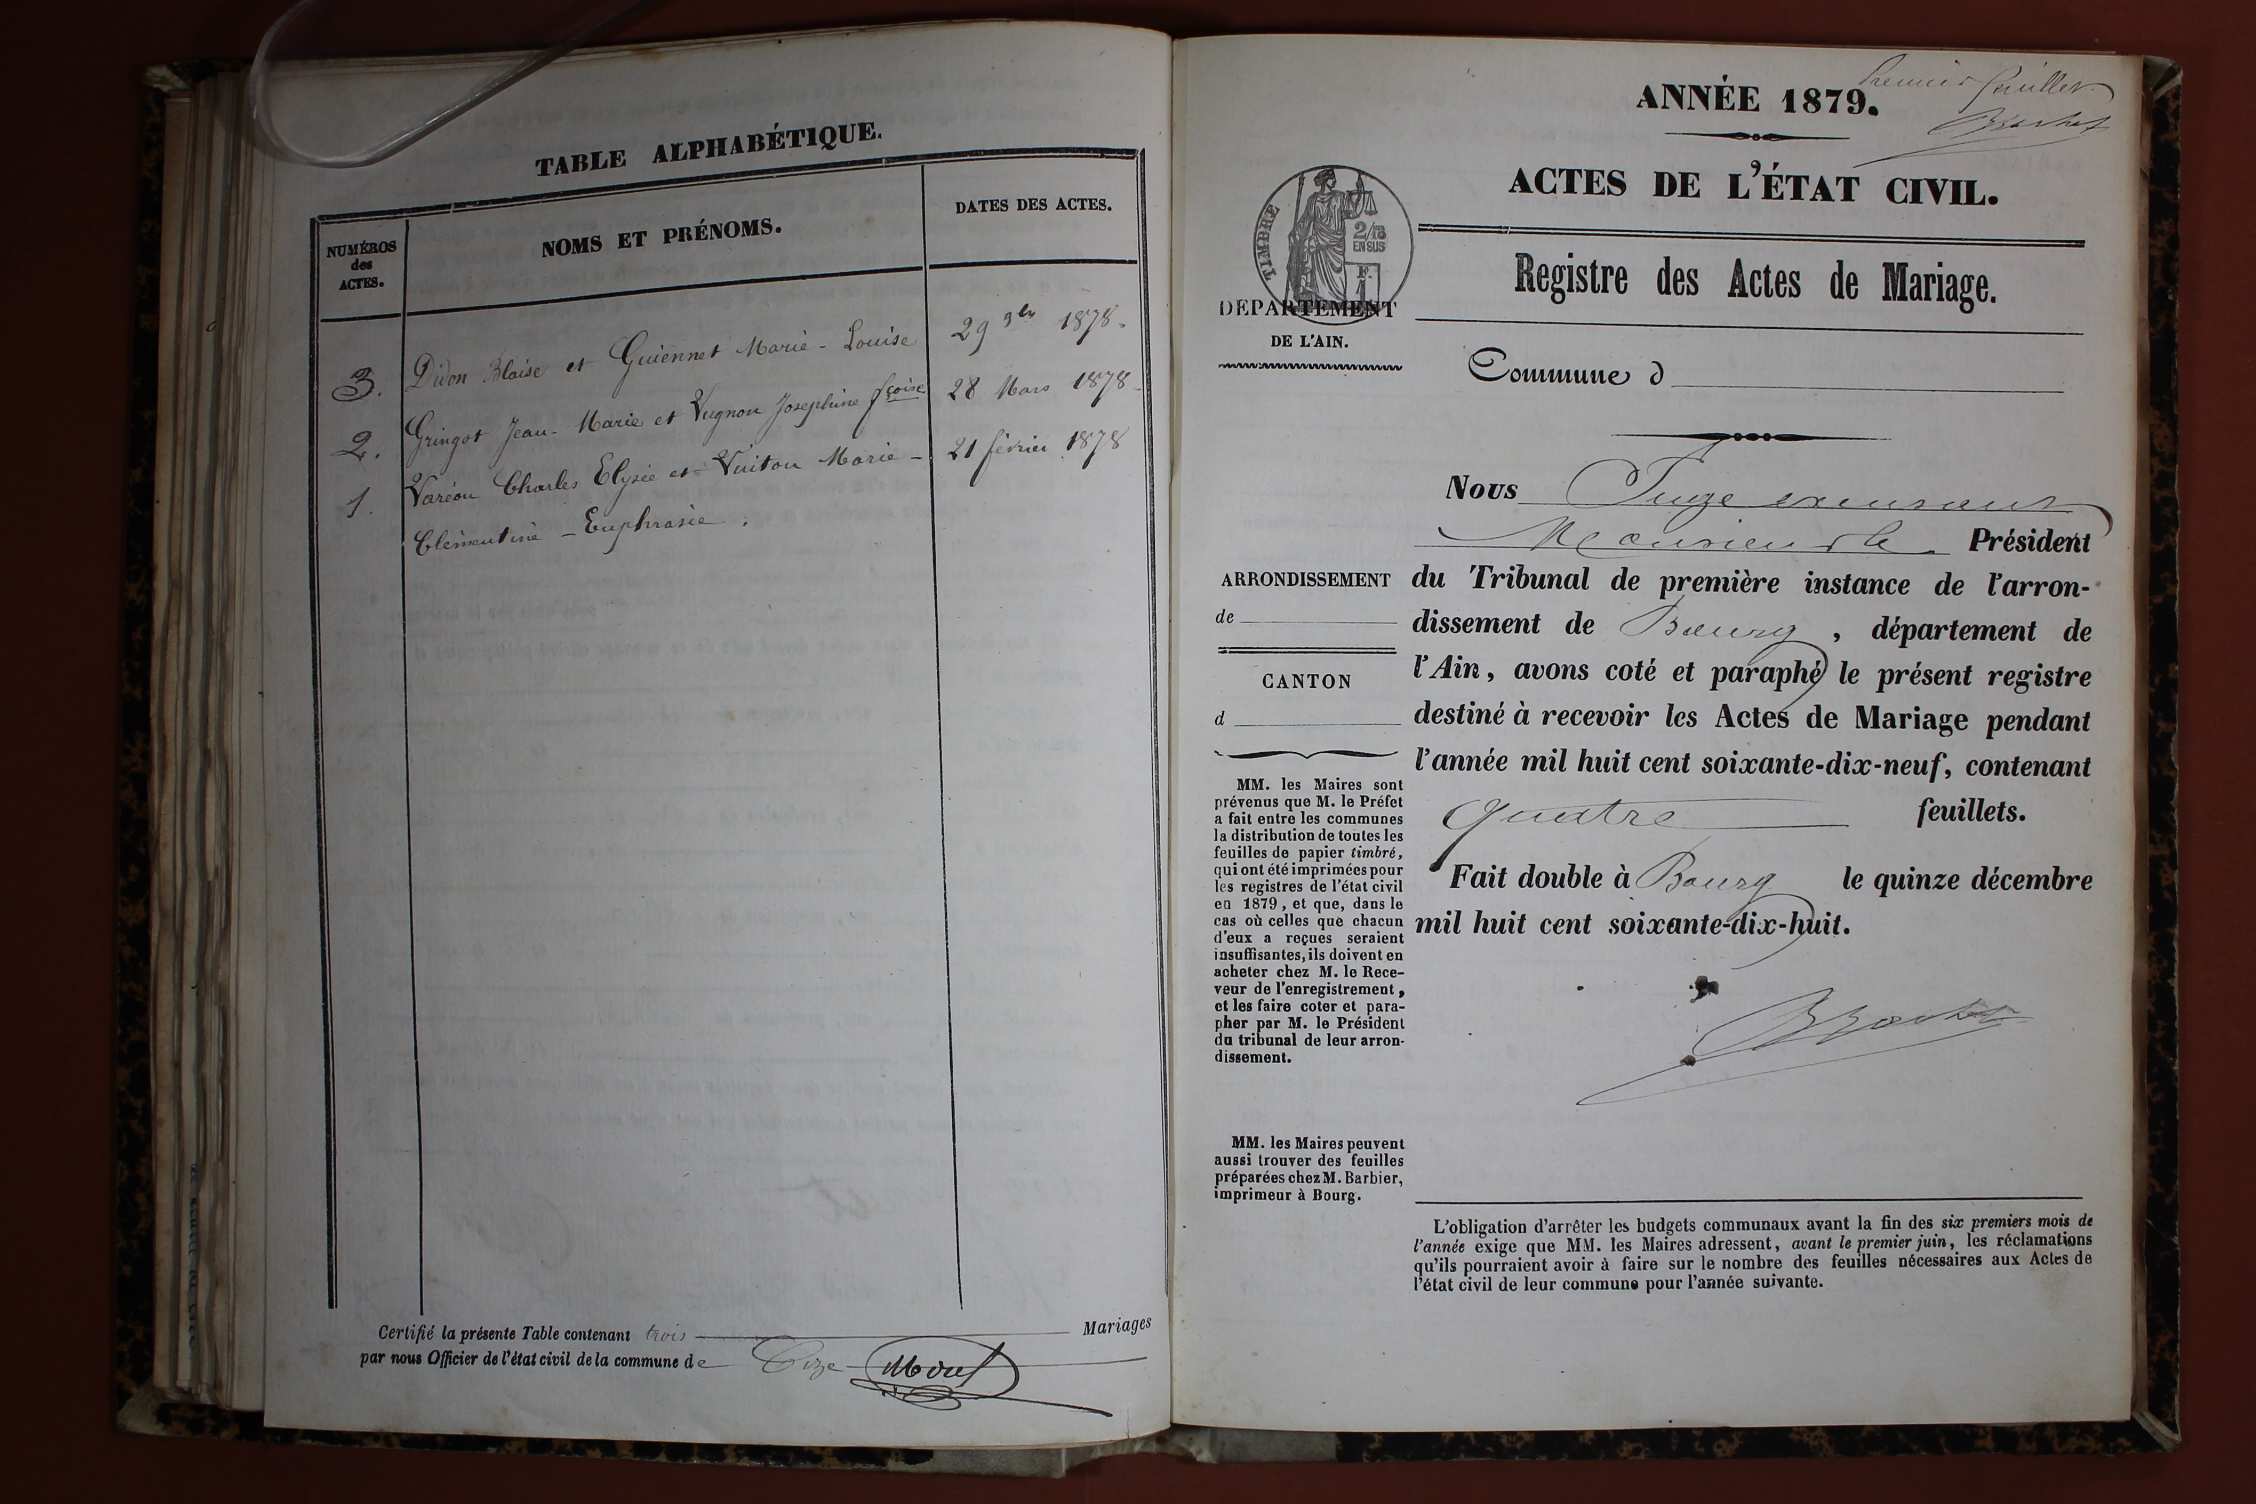 TABLE ALPHABÉTIQUE.
NUMÉROS
des
ACTES.
NOMS ET PRÉNOMS.
DATES DES ACTES.
3. Didon Blaise et Guiennet Marie-Louise 29 9bre 1878.
2. Gringot Jean-Marie et Vugnon Josephine fçoise 28 Mars 1878-
1. Varéon Charles Elysée et Vuiton Marie- 21 février 1878
Clémentine - Euphrasie.
Certifié la présente Table contenant trois Mariages
par nous Officier de l'état civil de la commune de Cize
Premier feuillet
ANNÉE 1879.
ACTES DE L'ÉTAT CIVIL.
TIMBRE
2/10
EN SUS
F.
DEPARTEMENT
DE L'AIN.
Registre des Actes de Mariage.
Commune d
Nous Juge
Monsieur le Président
ARRONDISSEMENT
de
CANTON
d
du Tribunal de première instance de l'arron-
dissement de Bourg, département de
l'Ain, avons coté et paraphé le présent registre
destiné à recevoir les Actes de Mariage pendant
l'année mil huit cent soixante-dix-neuf, contenant
quatre feuillets.
Fait double à Bourg le quinze décembre
mil huit cent soixante-dix-huit.
MM. les Maires sont
prévenus que M. le Préfet
a fait entre les communes
la distribution de toutes les
feuilles de papier timbré,
qui ont été imprimées pour
les registres de l'état civil
en 1879, et que, dans le
cas où celles que chacun
d'eux a reçues seraient
insuffisantes, ils doivent en
acheter chez M. le Rece-
veur de l'enregistrement,
et les faire coter et para-
pher par M. le Président
du tribunal de leur arron-
dissement.
MM. les Maires peuvent
aussi trouver des feuilles
préparées chez M. Barbier,
imprimeur à Bourg.
L'obligation d'arrêter les budgets communaux avant la fin des six premiers mois de
l'année exige que MM. les Maires adressent, avant le premier juin, les réclamations
qu'ils pourraient avoir à faire sur le nombre des feuilles nécessaires aux Actes de
l'état civil de leur commune pour l'année suivante.